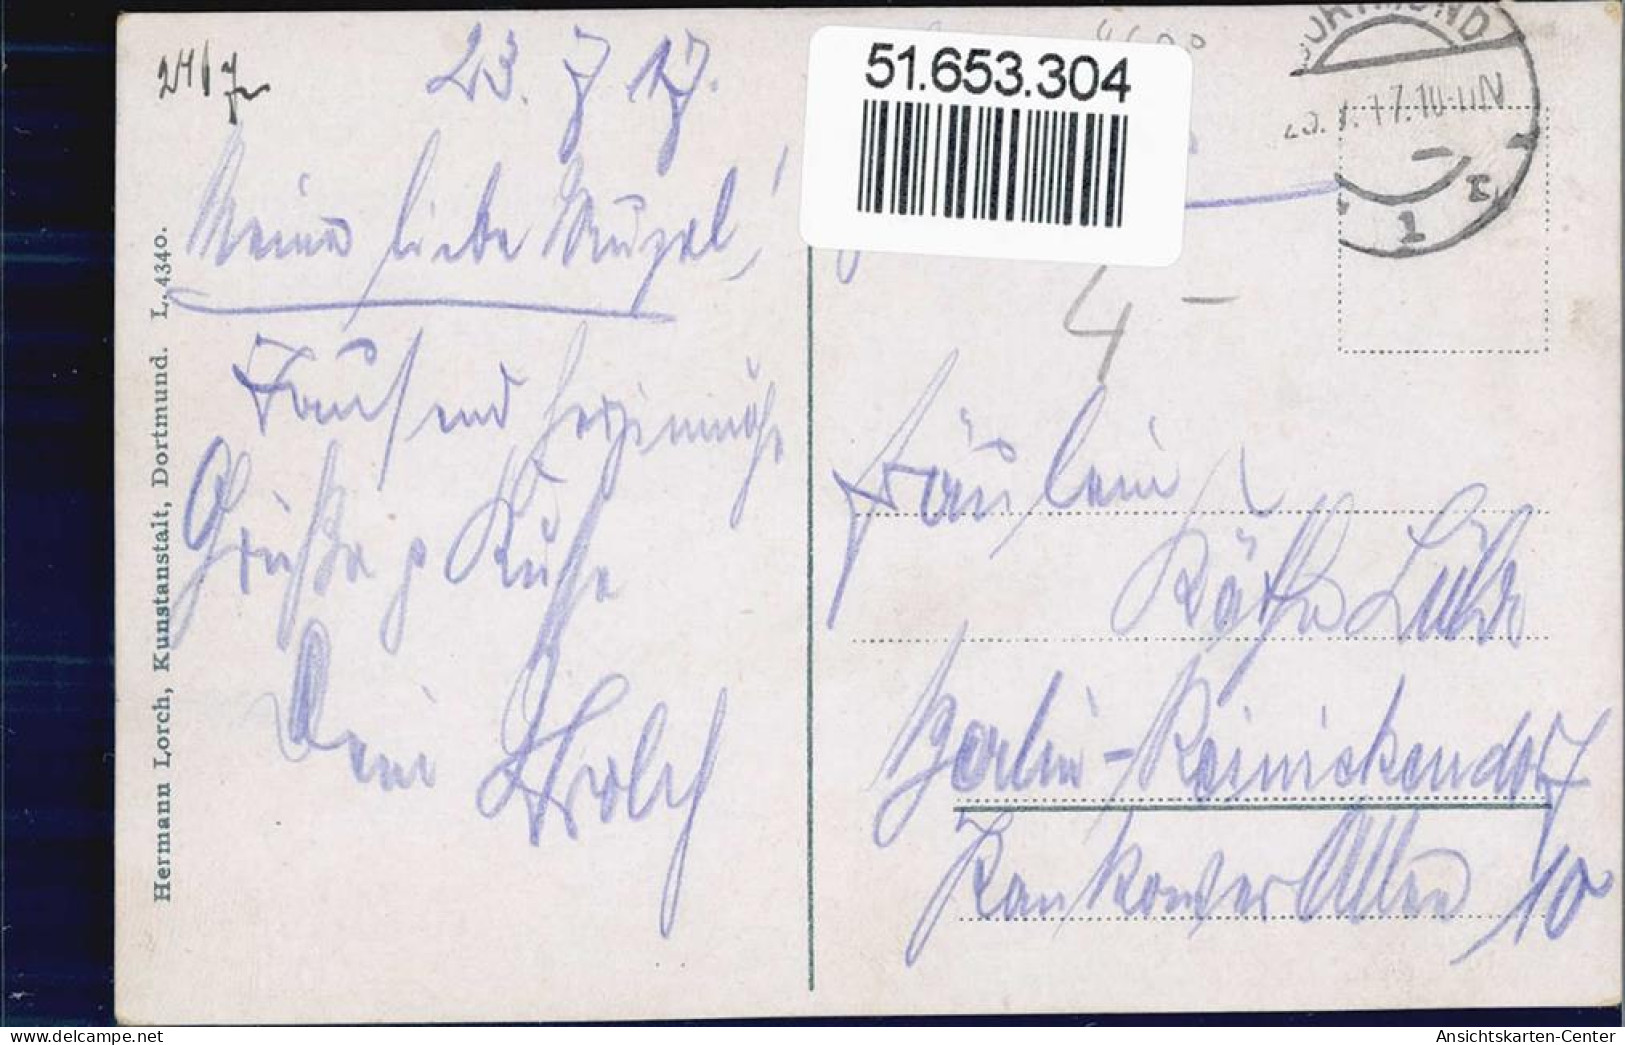 24/7
23. 7. 17.
Meine liebe
Tausend herzinnige
Grüße & Küße
Dein
Hermann Lorch, Kunstanstalt, Dortmund. L. 4340.
51.653.304
DORTMUND
23.7.17.10-11N
1
4 –
Fräulein
Käthe Luhr
Berlin-Reinickendorf
Pankower Allee 10
Ansichtskarten-Center